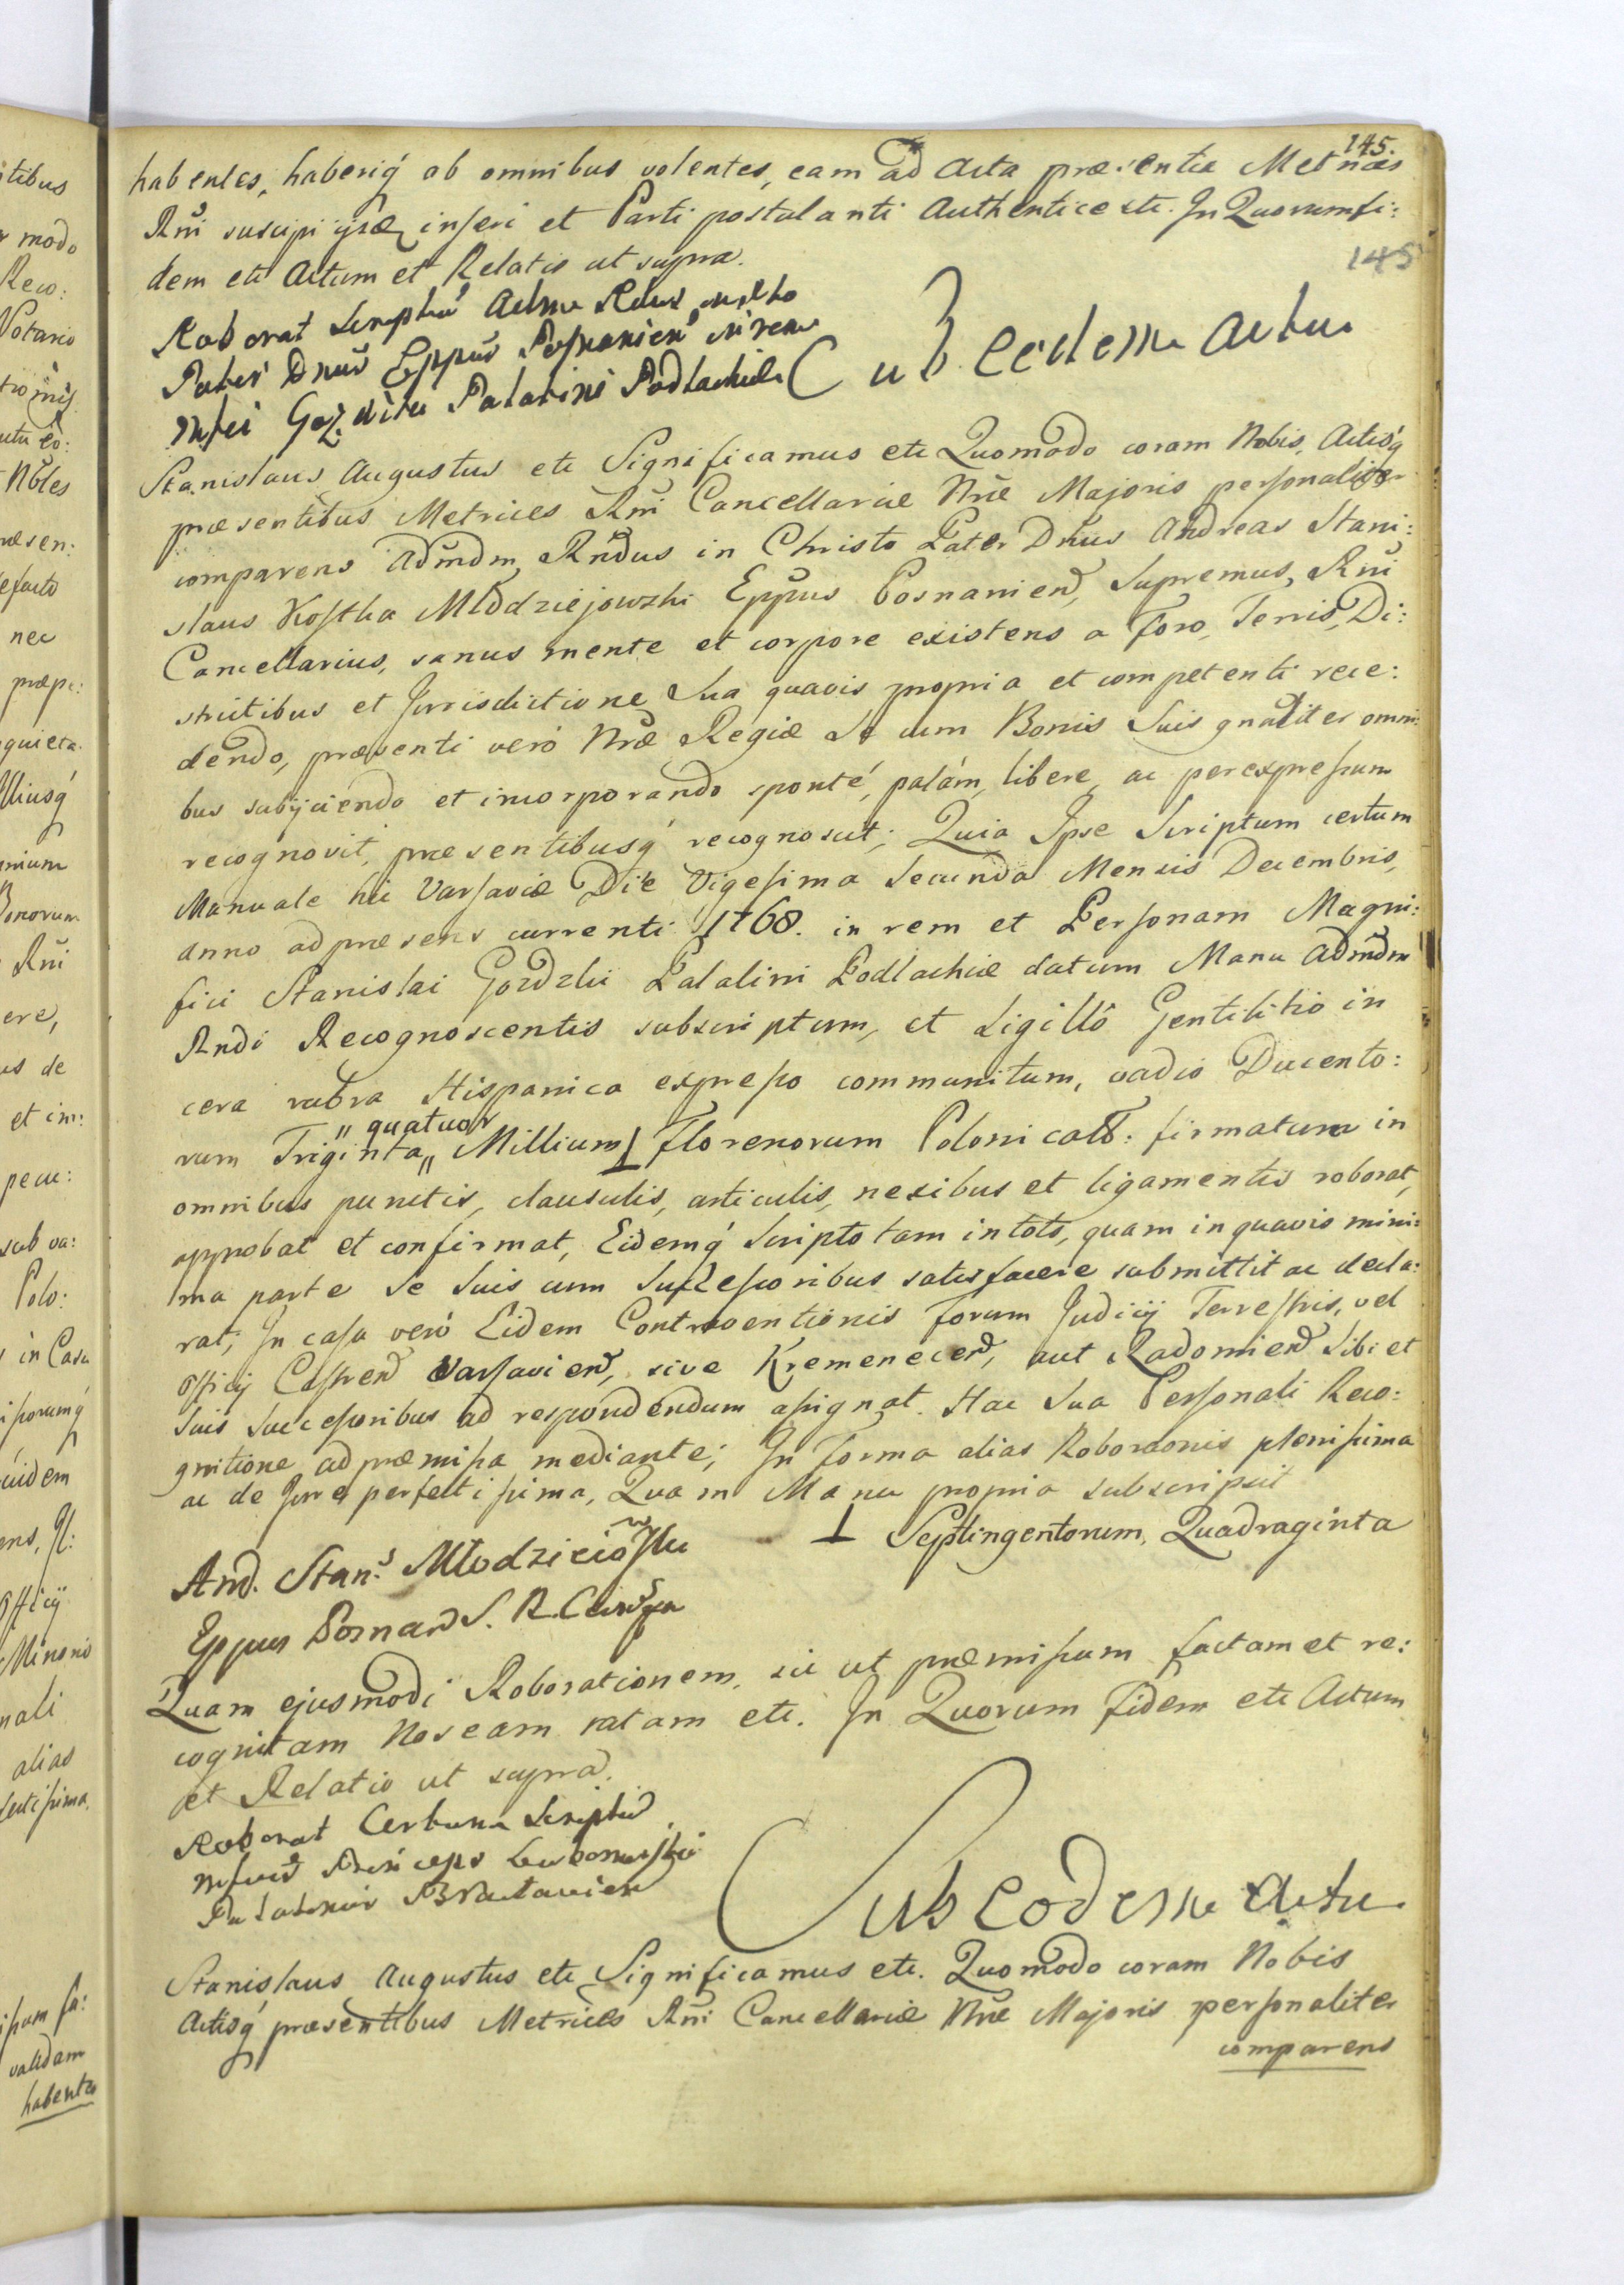 145.
habentes, haberiq́ ab omnibus volentes, eam ad Acta præsentia Metrices
Rn̄i suscipi ijsq inseri et Parti postulanti Authentice etc. In Quorum fi:
dem etc Actum et Relatio ut supra.
145
Roborat Scriptū Adme Rdus in Xto
Pater Dnūs Eppūs Posnanien̄ in rem
Mfci Gozdzki Palatini Podlachiæ
Sub eodem actu
Stanislaus Augustus etc Significamus etc Quomodo coram Nobis, Actisq́
præsentibus Metrices Rn̄i Cancellariæ Nræ Majoris personaliter
comparens Admdm Rndus in Christo Pater Dnūs Andreas Stani:
slaus Kostka Młodziejowski Eppus Posnanien, Supremus, Rn̄i
Cancellarius, sanus mente et corpore existens a Foro, Terris, Di:
strictibus et Jurisdictione Sua quavis propria et competenti rece:
dendo, præsenti verò Nræ Regiæ Se cum Bonis Suis gnaliter omni:
bus subijciendo et incorporando sponté, palám, libere, ac per expressum
recognovit, præsentibusq́ recognoscit; Quia Ipse Scriptum certum
Manuale hic Varsaviæ Die Vigesima Secunda Mensis Decembris,
Anno ad præsens currenti 1768. in rem et Personam Magni:
fici Stanislai Gozdzki Palatini Podlachiæ datum Manu Admdm
Rndi Recognoscentis subscriptum, et Sigillô Gentilitio in
cera rubra Hispanica expresso communitum, vadio Ducento:
" quatuor
rum Triginta " Millium ⊥ Florenorum Polonicalb: firmatum in
omnibus punctis, clausulis, articulis, nexibus et ligamentis roborat,
approbat et confirmat, Eidemq́ Scripto tam in toto, quam in quavis mini:
ma parte Se Suis cum Successoribus satisfacere submittit ac decla:
rat; In casu verò Eidem Contraventionis Forum Judicij Terrestris, vel
Officij Castren Varsavien, sive Kremenecen, aut Radomien Sibi et
Suis Successoribus ad respondendum assignat. Hac Sua Personali Reco:
gnitione ad præmissa mediante; In Forma alias Roboraonis plenissima
ac de Jure perfectissima, Quam Manu propria subscripsit
⊥ Septingentorum, Quadraginta
And. Stan: Młodzieiowski
Eppus Posnan S. R. Canc
Quam ejusmodi Roborationem, sic ut præmissum factam et re:
cognitam Nos eam ratam etc. In Quorum Fidem etc Actum
et Relatio ut supra.
Roborat Certum Scriptū
Mfcus Princeps Lubomirski
Palatinus Braclavien
Sub eodem actu
Stanislaus Augustus etc Significamus etc. Quomodo coram Nobis
Actisq́ præsentibus Metrices Rn̄i Cancellariæ Nræ Majoris personaliter
comparens